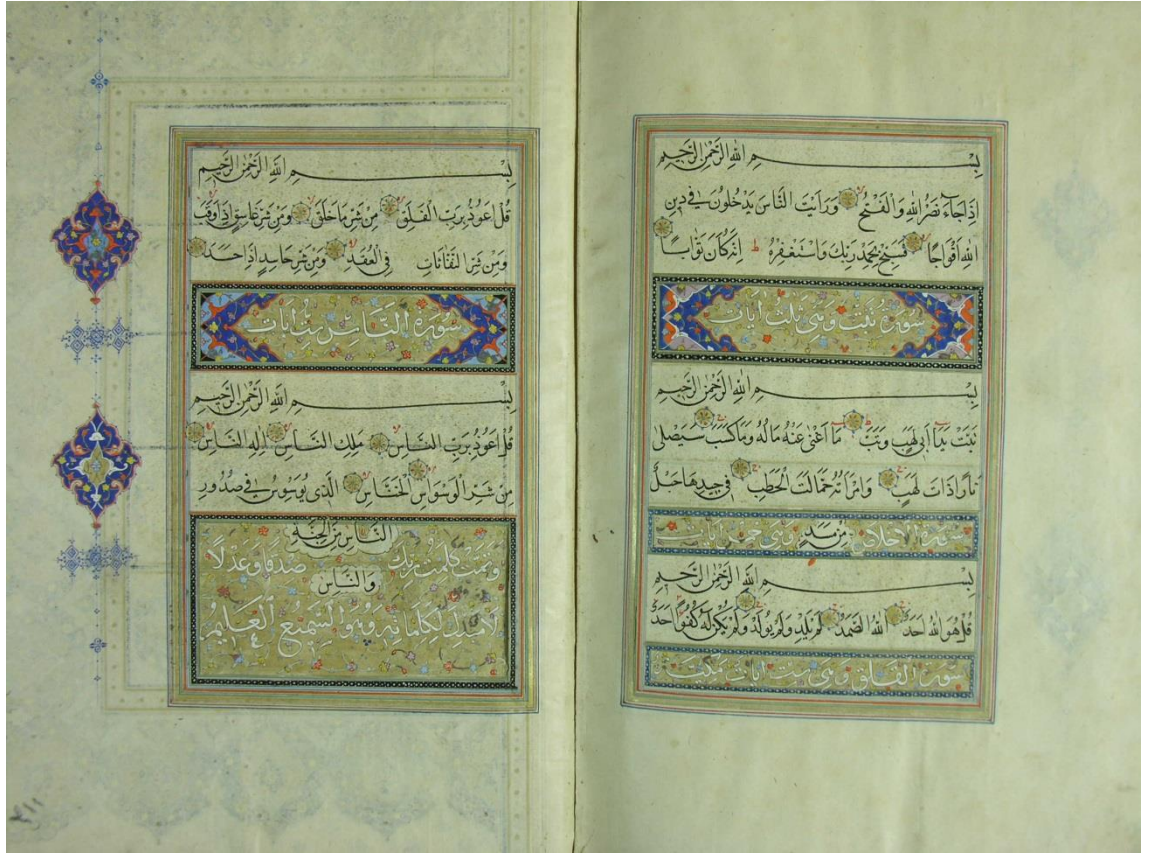 بِسْمِ اللهِ الرَّحْمٰنِ الرَّحِيمِ
اِذَا جَآءَ نَصْرُ اللهِ وَالْفَتْحُ وَرَاَيْتَ النَّاسَ يَدْخُلُونَ فِي دِينِ
اللهِ اَفْوَاجًا فَسَبِّحْ بِحَمْدِ رَبِّكَ وَاسْتَغْفِرْهُ اِنَّهُ كَانَ تَوَّابًا
سورة تبت وهي ثلث ايات
بِسْمِ اللهِ الرَّحْمٰنِ الرَّحِيمِ
تَبَّتْ يَدَآ اَبِي لَهَبٍ وَتَبَّ مَآ اَغْنٰى عَنْهُ مَالُهُ وَمَا كَسَبَ سَيَصْلٰى
نَارًا ذَاتَ لَهَبٍ وَامْرَاَتُهُ حَمَّالَتَ الْحَطَبِ فِي جِيدِهَا حَبْلٌ
سورة الاخلاص مِنْ مَسَدٍ وهي خمس ايات
بِسْمِ اللهِ الرَّحْمٰنِ الرَّحِيمِ
قُلْ هُوَ اللهُ اَحَدٌ اَللهُ الصَّمَدُ لَمْ يَلِدْ وَلَمْ يُولَدْ وَلَمْ يَكُنْ لَهُ كُفُوًا اَحَدٌ
سورة الفلق وهي ست ايات
بِسْمِ اللهِ الرَّحْمٰنِ الرَّحِيمِ
قُلْ اَعُوذُ بِرَبِّ الْفَلَقِ مِنْ شَرِّ مَا خَلَقَ وَمِنْ شَرِّ غَاسِقٍ اِذَا وَقَبَ
وَمِنْ شَرِّ النَّفَّاثَاتِ فِي الْعُقَدِ وَمِنْ شَرِّ حَاسِدٍ اِذَا حَسَدَ
سورة الناس ست ايات
بِسْمِ اللهِ الرَّحْمٰنِ الرَّحِيمِ
قُلْ اَعُوذُ بِرَبِّ النَّاسِ مَلِكِ النَّاسِ اِلٰهِ النَّاسِ
مِنْ شَرِّ الْوَسْوَاسِ الْخَنَّاسِ الَّذِي يُوَسْوِسُ فِي صُدُورِ
النَّاسِ مِنَ الْجِنَّةِ
وتمت كلمت ربك صدقا وعدلا
وَالنَّاسِ
لا مبدل لكلماته وهو السميع العليم